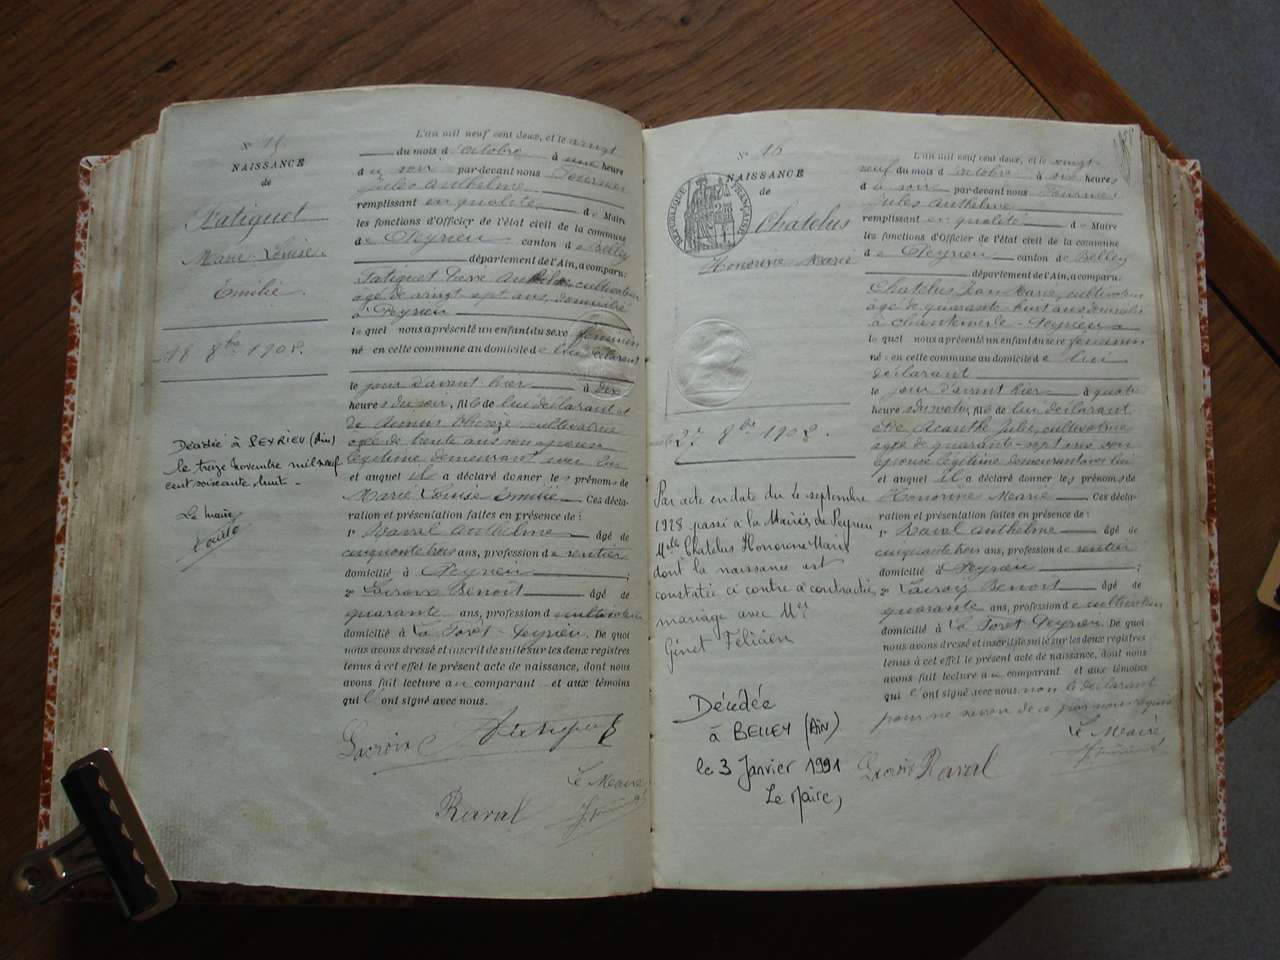 N° 15
NAISSANCE
de
Fatiguet
Marie Louise
Emilie.
18 8bre 1902.
Décédée à PEYRIEU (Ain)
le treize novembre mil neuf
cent soixante huit -
Le maire
L'an mil neuf cent deux, et le vingt
du mois d'octobre à une heure
du soir par-devant nous Fournier
Jules Anthelme
remplissant en qualité de Maire
les fonctions d'Officier de l'état civil de la commune
de Peyrieu canton de Belley
département de l'Ain, a comparu:
Fatiguet Pierre cultivateur
âgé de vingt sept ans domicilié
à Peyrieu
lequel nous a présenté un enfant du sexe féminin
né en cette commune au domicile de lui déclarant
le jour d'avant-hier à dix
heures du soir, fille de lui déclarant et
de cultivatrice
âgée de trente ans son épouse
légitime demeurant avec lui
et auquel il a déclaré donner les prénoms de
Marie Louise Emilie Ces décla-
ration et présentation faites en présence de :
1° Raval Anthelme âgé de
cinquante trois ans, profession de rentier
domicilié à Peyrieu ;
2° Lacroix Benoît âgé de
quarante ans, profession de cultivateur
domicilié à La Forêt-Peyrieu. De quoi
nous avons dressé et inscrit de suite sur les deux registres
tenus à cet effet le présent acte de naissance, dont nous
avons fait lecture au comparant et aux témoins
qui l'ont signé avec nous.
Lacroix Fatiguet
Le Maire
Raval
N° 16
NAISSANCE
de
RÉPUBLIQUE FRANÇAISE
Chatelus
Honorine Marie
27 8bre 1902.
Par acte en date du 4 septembre
1928 passé à la Mairie de Peyrieu
Melle Chatelus Honorine Marie
dont la naissance est
constatée ci contre a contracté
mariage avec Mr
Ginet Félicien
Décédée
à BELLEY (Ain)
le 3 Janvier 1991
Le Maire,
L'an mil neuf cent deux, et le vingt
neuf du mois d'octobre à six heures
du soir par-devant nous Fournier
Jules Anthelme
remplissant en qualité de Maire
les fonctions d'Officier de l'état civil de la commune
de Peyrieu canton de Belley
département de l'Ain, a comparu:
Chatelus Jean Marie, cultivateur
âgé de quarante-huit ans domicilié
à Chantemerle-Peyrieu
lequel nous a présenté un enfant du sexe féminin
né en cette commune au domicile de lui
déclarant
le jour d'avant hier à quatre
heures du matin, fille de lui déclarant
et de Acanthe Julie, cultivatrice
âgée de quarante-sept ans son
épouse légitime demeurant avec lui
et auquel il a déclaré donner les prénoms de
Honorine Marie Ces décla-
ration et présentation faites en présence de :
1° Raval Anthelme âgé de
cinquante trois ans, profession de rentier
domicilié à Peyrieu ;
2° Lacroix Benoît âgé de
quarante ans, profession de cultivateur
domicilié à La Forêt Peyrieu. De quoi
nous avons dressé et inscrit de suite sur les deux registres
tenus à cet effet le présent acte de naissance, dont nous
avons fait lecture au comparant et aux témoins
qui l'ont signé avec nous, non le déclarant
pour ne savoir de ce par nous requis
Le Maire,
Lacroix Raval